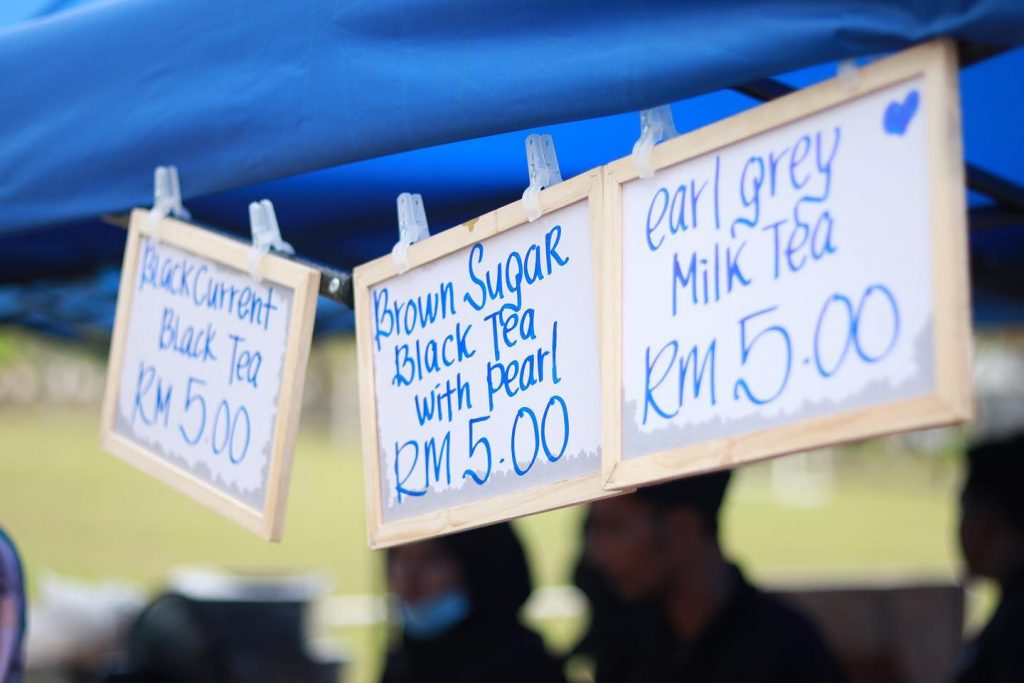 BlackCurrent
Black Tea
RM 5.00
Brown Sugar
Black Tea
with pearl
RM 5.00
earl grey
Milk Tea
RM 5.00